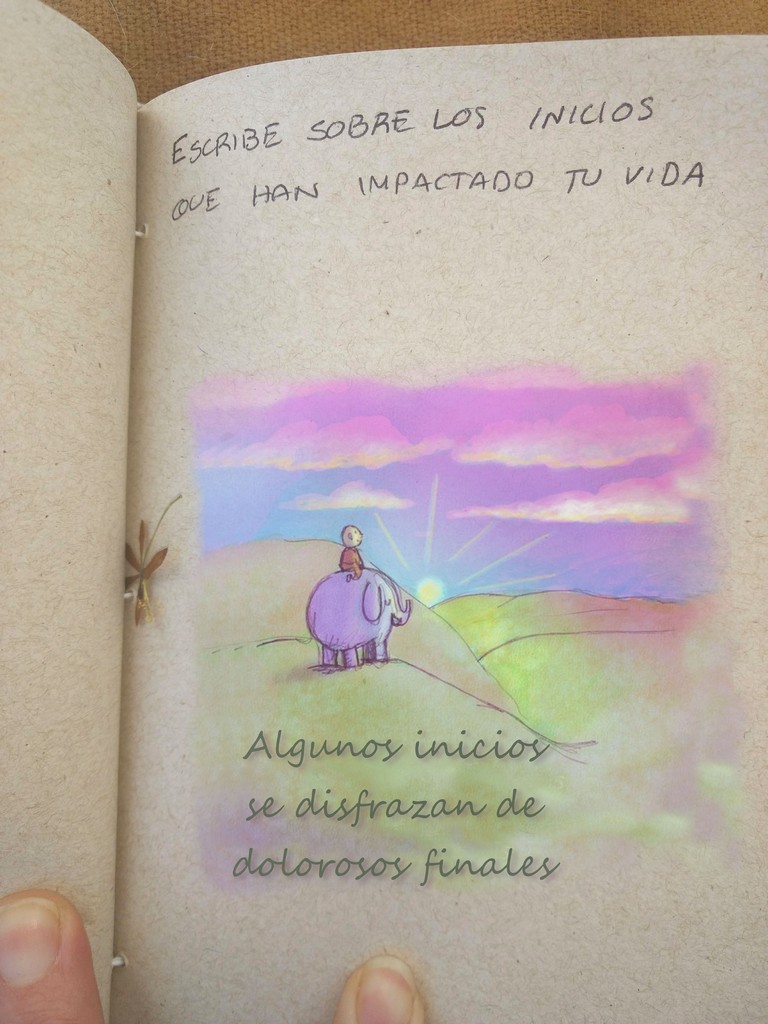 ESCRIBE SOBRE LOS INICIOS
QUE HAN IMPACTADO TU VIDA
Algunos inicios
se disfrazan de
dolorosos finales